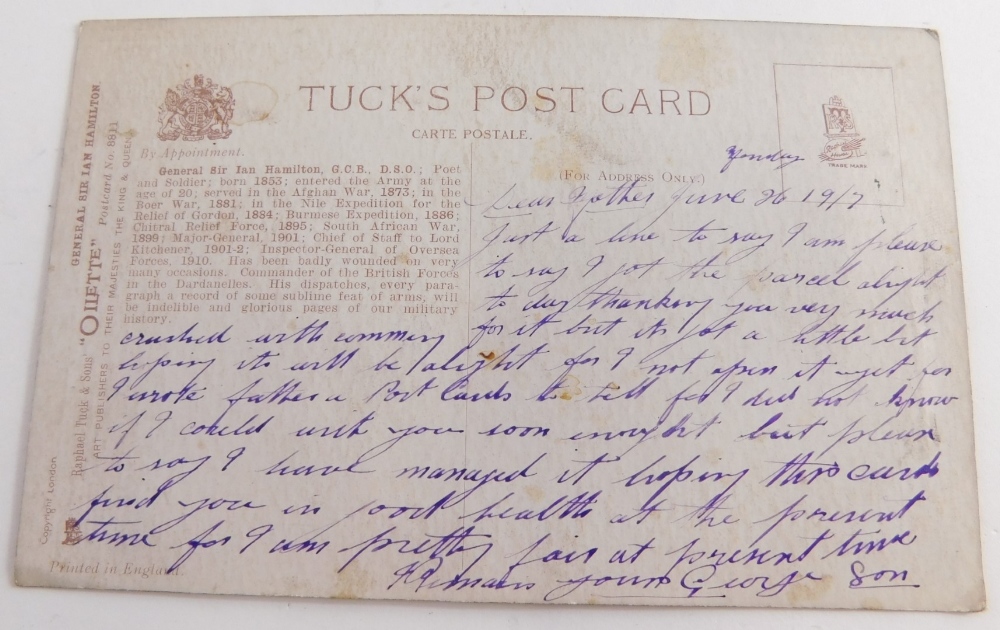 TUCK'S POST CARD
CARTE POSTALE.
By Appointment.
(FOR ADDRESS ONLY.)
TRADE MARK
General Sir Ian Hamilton, G.C.B., D.S.O.; Poet
and Soldier; born 1853; entered the Army at the
age of 20; served in the Afghan War, 1873; in the
Boer War, 1881; in the Nile Expedition for the
Relief of Gordon, 1884; Burmese Expedition, 1886;
Chitral Relief Force, 1895; South African War,
1899; Major-General, 1901; Chief of Staff to Lord
Kitchener, 1901-2; Inspector-General of Oversea
Forces, 1910. Has been badly wounded on very
many occasions. Commander of the British Forces
in the Dardanelles. His dispatches, every para-
graph a record of some sublime feat of arms, will
be indelible and glorious pages of our military
history.
GENERAL SIR IAN HAMILTON.
Raphael Tuck & Sons' "OILETTE" Postcard No. 8811
ART PUBLISHERS TO THEIR MAJESTIES THE KING & QUEEN
Copyright London
Printed in England.
Dear Mother June 26 1917
Just a line to say I am please
to say I got the parcel alright
to day thanking you very much
for it but its got a little bit
crushed with comming
hoping its will be alright for I not open it yet for
I wrote father a Post Cards to tell for I did not know
if I could writ you soon enought but pleas
to say I have managed it hoping this card
find you in good health at the present
time for I am pretty fair at present time
Remains your George Son